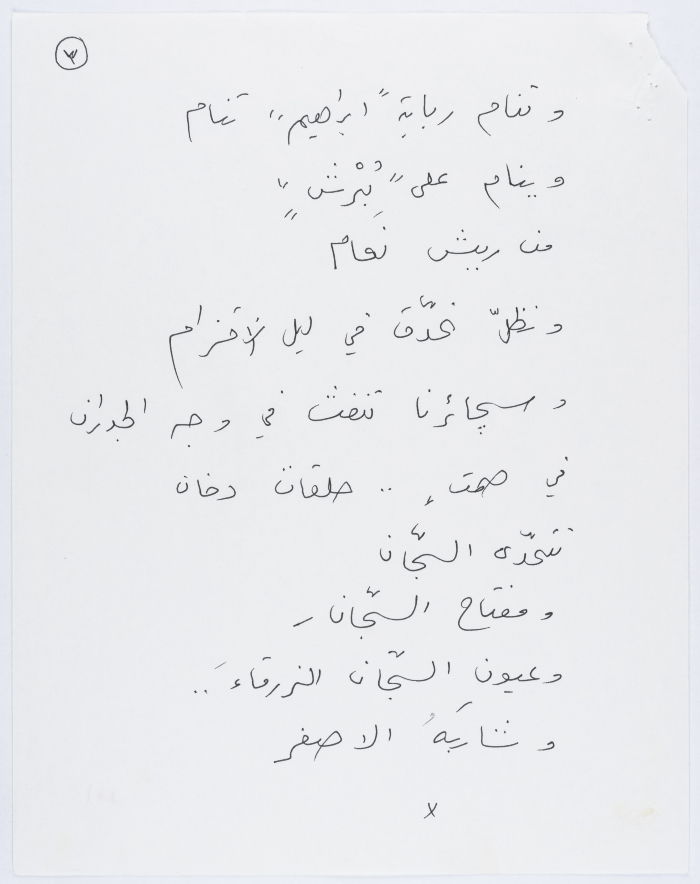 ٣
و تنام ربابة "ابراهيم" تنام
وينام على "بُرْشٍ"
من ريش نَعام
ونظلّ نحدّق في ليل الأقزام
وسجائرنا تنفث في وجه الجدران
في صمتٍ .. حلقات دخان
تتحدّى السجّان
ومفتاح السجّان
وعيون السجّان الزرقاءَ ..
وشاربَهُ الاصفر
x